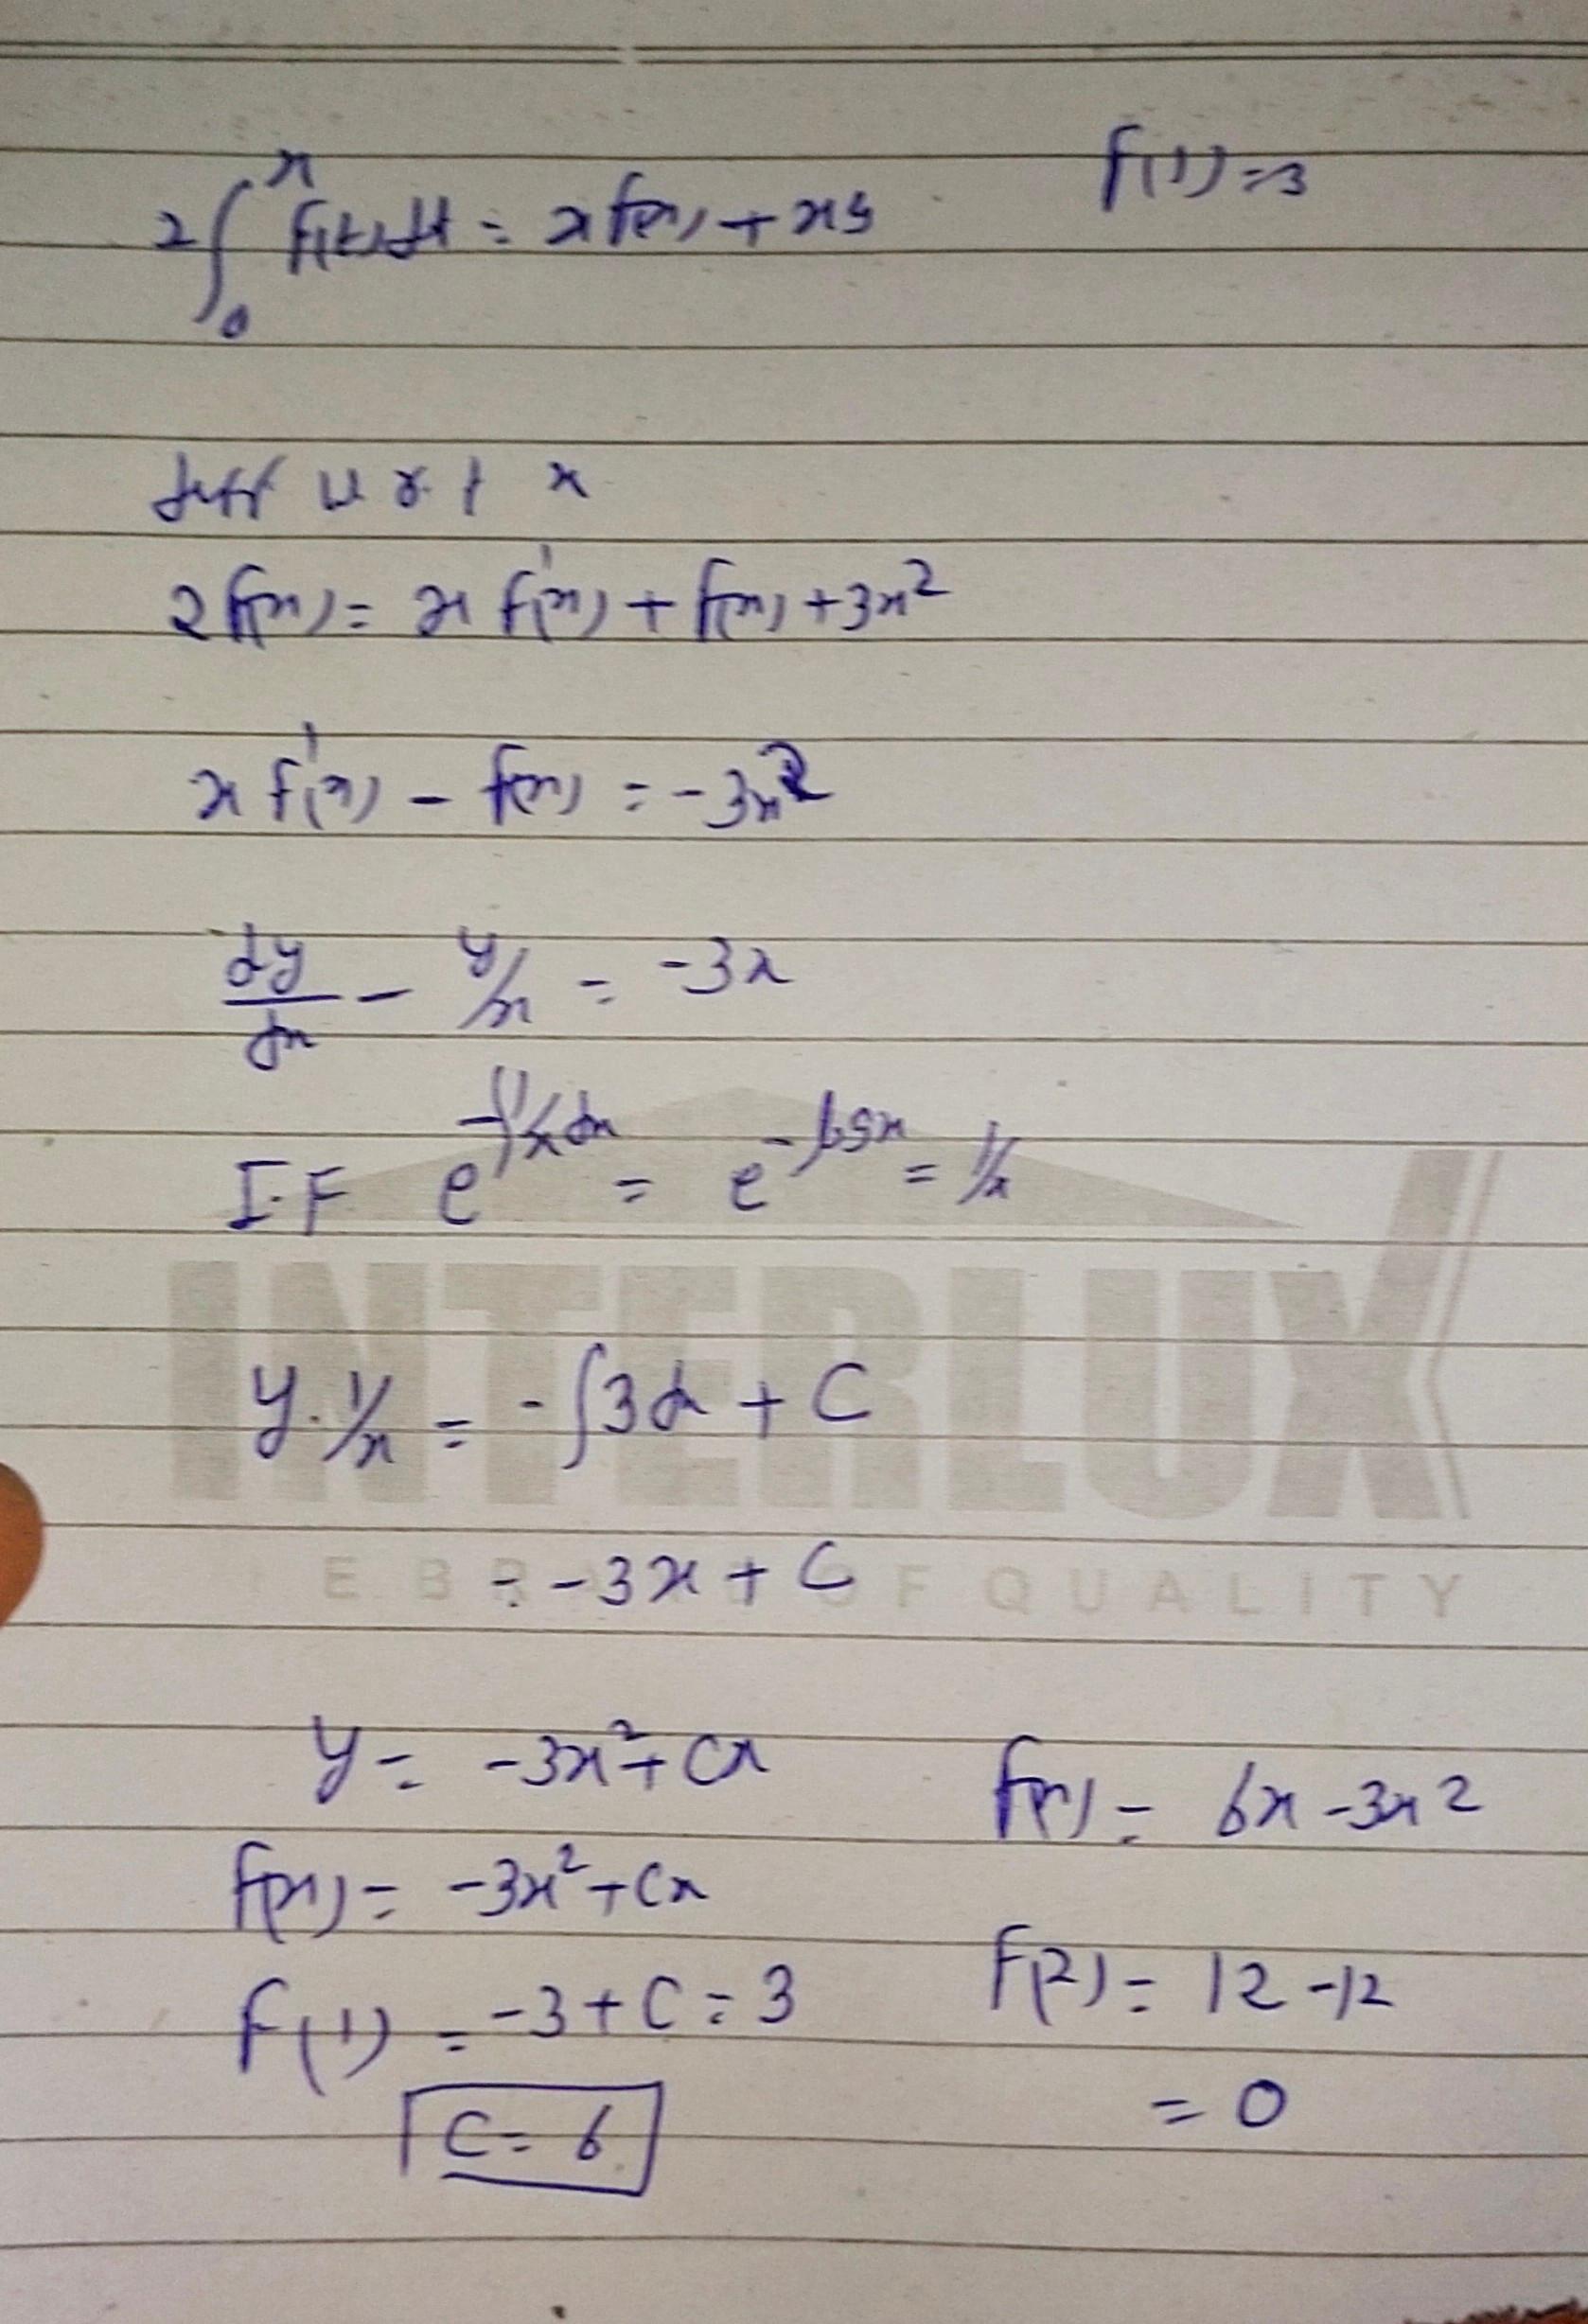 2∫₀ˣ f(t)dt = x f(x) + x³ f(1)=3
diff w.r.t x
2f(x) = x f'(x) + f(x) + 3x²
x f'(x) - f(x) = -3x²
dy/dx - y/x = -3x
I.F e^(-∫1/x dx) = e^(-logx) = 1/x
INTERLUX
y.1/x = -∫3dx + C
= -3x + C
OF QUALITY
y = -3x² + Cx f(x) = 6x - 3x²
f(x) = -3x² + Cx
f(1) = -3 + C = 3 f(2) = 12 - 12
C = 6 = 0